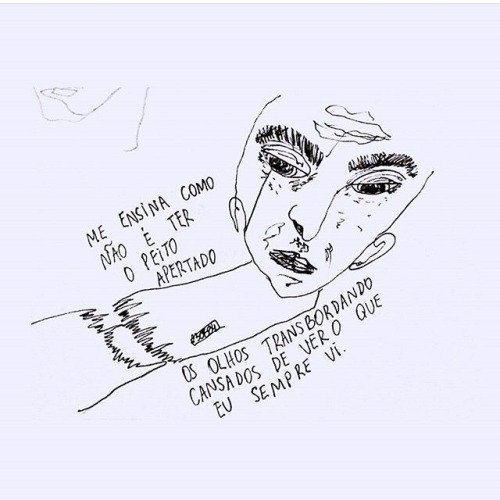 ME ENSINA COMO
NÃO É TER
O PEITO
APERTADO
OS OLHOS TRANSBORDANDO
CANSADOS DE VER O QUE
EU SEMPRE VI.